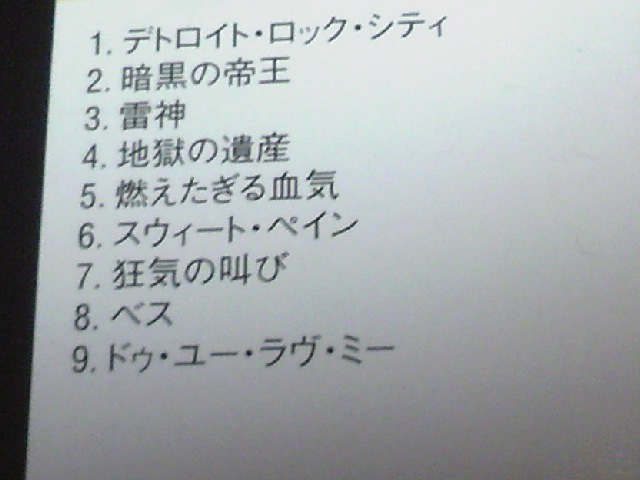 1. デトロイト・ロック・シティ
2. 暗黒の帝王
3. 雷神
4. 地獄の遺産
5. 燃えたぎる血気
6. スウィート・ペイン
7. 狂気の叫び
8. ベス
9. ドゥ・ユー・ラヴ・ミー